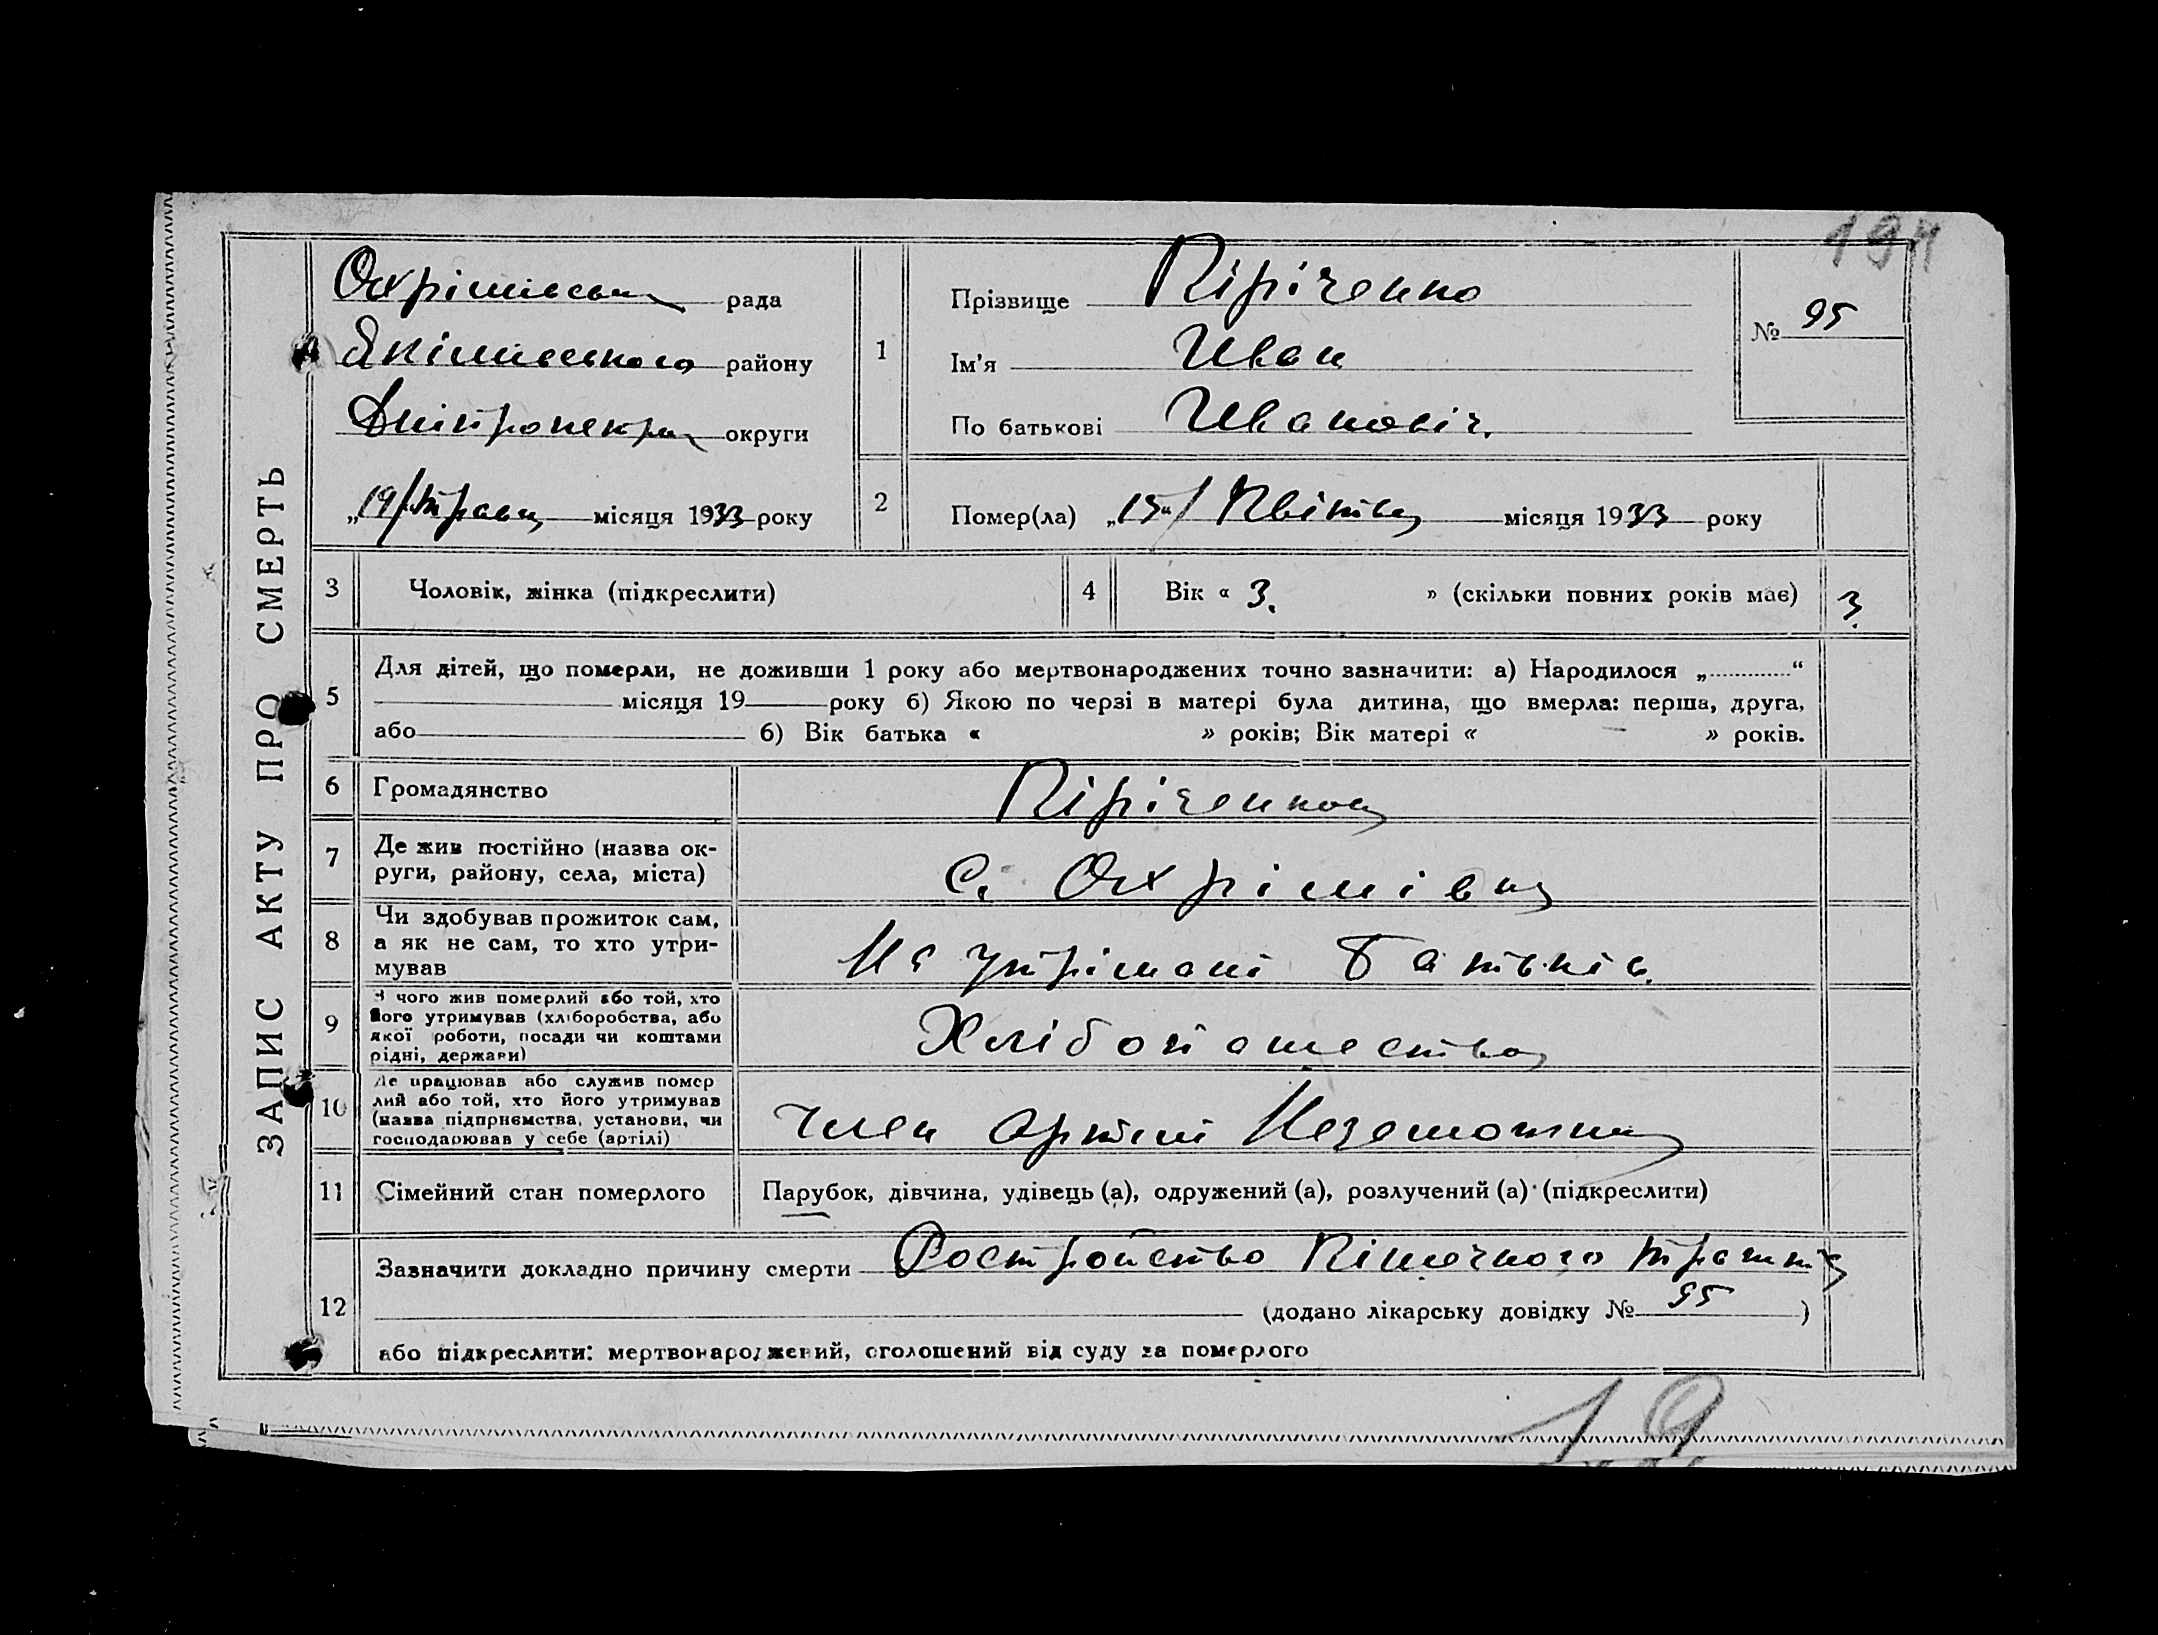 194
ЗАПИС АКТУ ПРО СМЕРТЬ
Охрімівська рада
Якімівського району
Дніпропетр. округи
„19/Травня місяця 1933 року
1
Прізвище Піріченко
Ім'я Иван
По батькові Иванович.
№ 95
2
Помер(ла) „15"/ Квітня місяця 1933 року
3 Чоловік, жінка (підкреслити)
4 Вік « 3. » (скільки повних років має) 3.
5
Для дітей, що померли, не доживши 1 року або мертвонароджених точно зазначити: а) Народилося „ “
місяця 19 року б) Якою по черзі в матері була дитина, що вмерла: перша, друга,
або б) Вік батька « » років; Вік матері « » років.
6 Громадянство Піріченко
7
Де жив постійно (назва ок-
руги, району, села, міста)
С. Охрімівка
8
Чи здобував прожиток сам,
а як не сам, то хто утри-
мував
На утрімані батьків.
9
З чого жив померлий або той, хто
його утримував (хліборобства, або
якої роботи, посади чи коштами
рідні, держави)
Хлібопашество
10
Де працював або служив помер
лий або той, хто його утримував
(назва підприємства, установи, чи
господарював у себе (артілі)
Член артілі Незаможник
11 Сімейний стан померлого Парубок, дівчина, удівець (а), одружений (а), розлучений (а) (підкреслити)
12
Зазначити докладно причину смерти Росстройство Кішечного тракта
(додано лікарську довідку № 95 )
або підкреслити: мертвонароджений, оголошений від суду за померлого
19